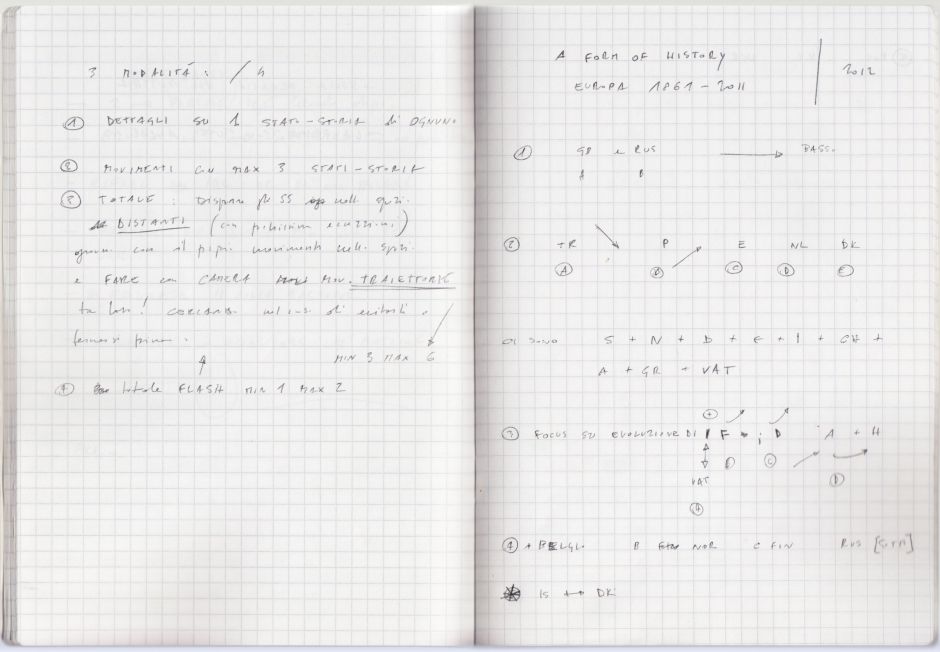 3 MODALITÁ : / 4
① DETTAGLI SU 1 STATI-STORIA di OGNUNO
② MOVIMENTI CON MAX 3 STATI-STORIA
③ TOTALE : DISPORRE gli SS negli spazi
DISTANTI (con pochissime eccezioni)
ognuno con il proprio movimento nello spazio
e FARE con CAMERA MOV. TRAIETTORIE
di evitarli e
fermarsi prima.
MIN 3 MAX 6
④ totale FLASH MIN 1 MAX 2
A FORM OF HISTORY
EUROPA 1861-2011
2012
① GB e RUS → BASSO
A B
② TR P E NL DK
A B C D E
CI SONO S + N + D + E + I + CH +
A + GR + VAT
③ FOCUS SU EVOLUZIONE DI I F D A + H
+
B C D
VAT
A
④ A BELGI. B NOR C FIN RUS
IS ↔ DK